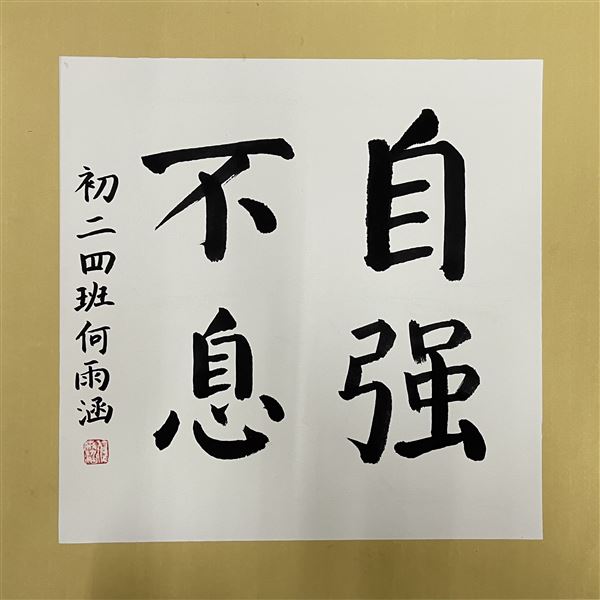 自强
不息
初二四班何雨涵